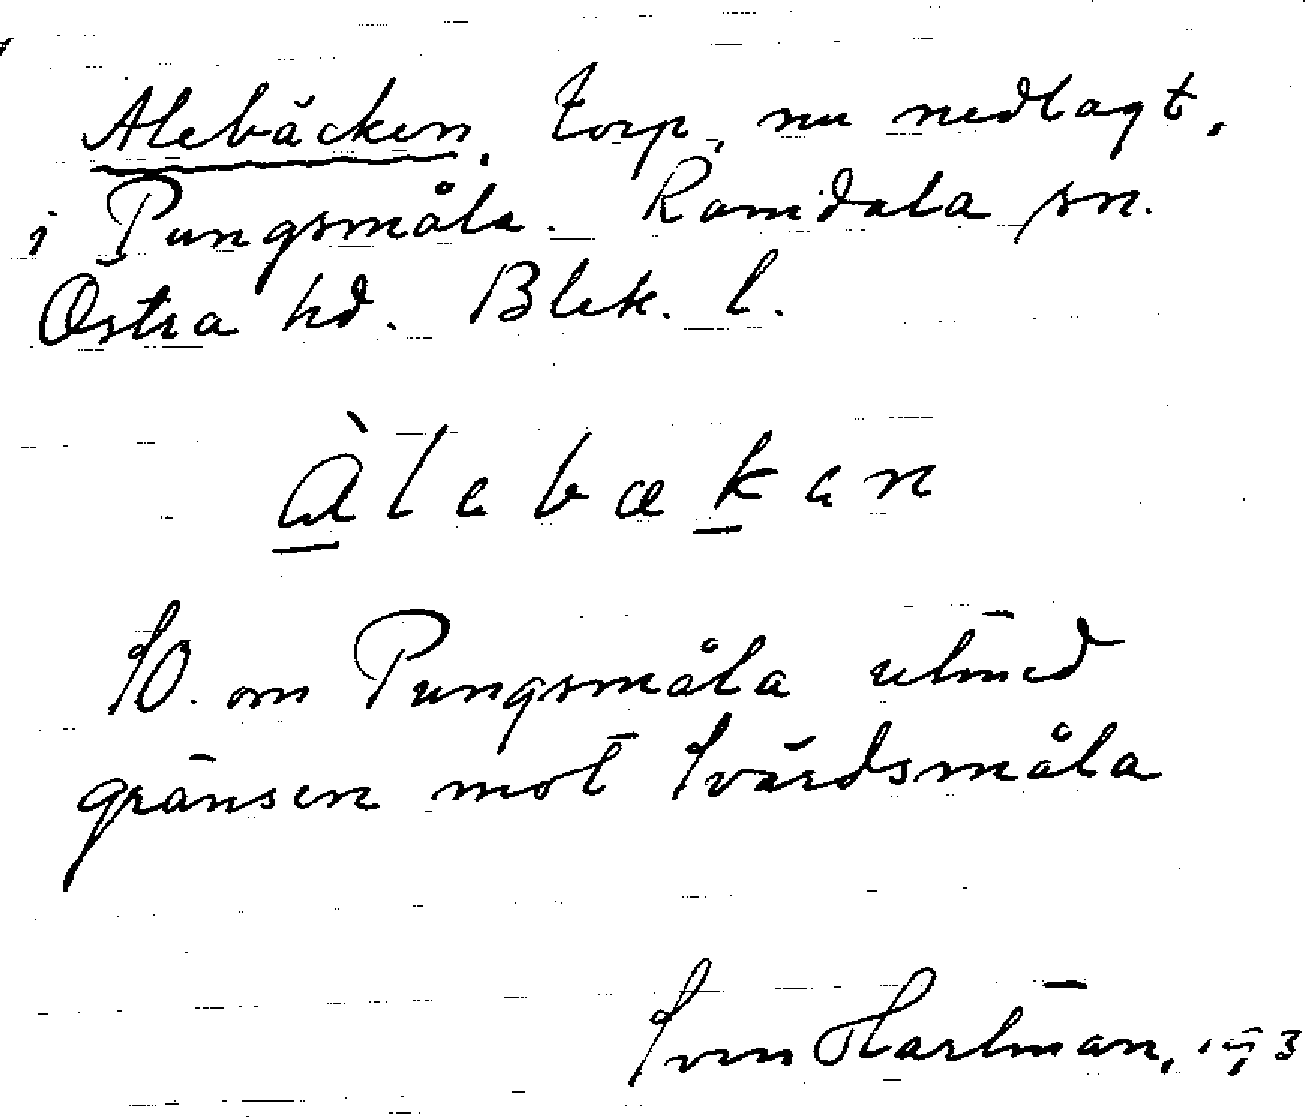 Alebäcken, torp, nu nedlagt,
i Pungsmåla. Ramdala sn.
Östra hd. Blek. l.
àlebækan
SO. om Pungsmåla utmed
gränsen mot Svärdsmåla
Sven Hartman,